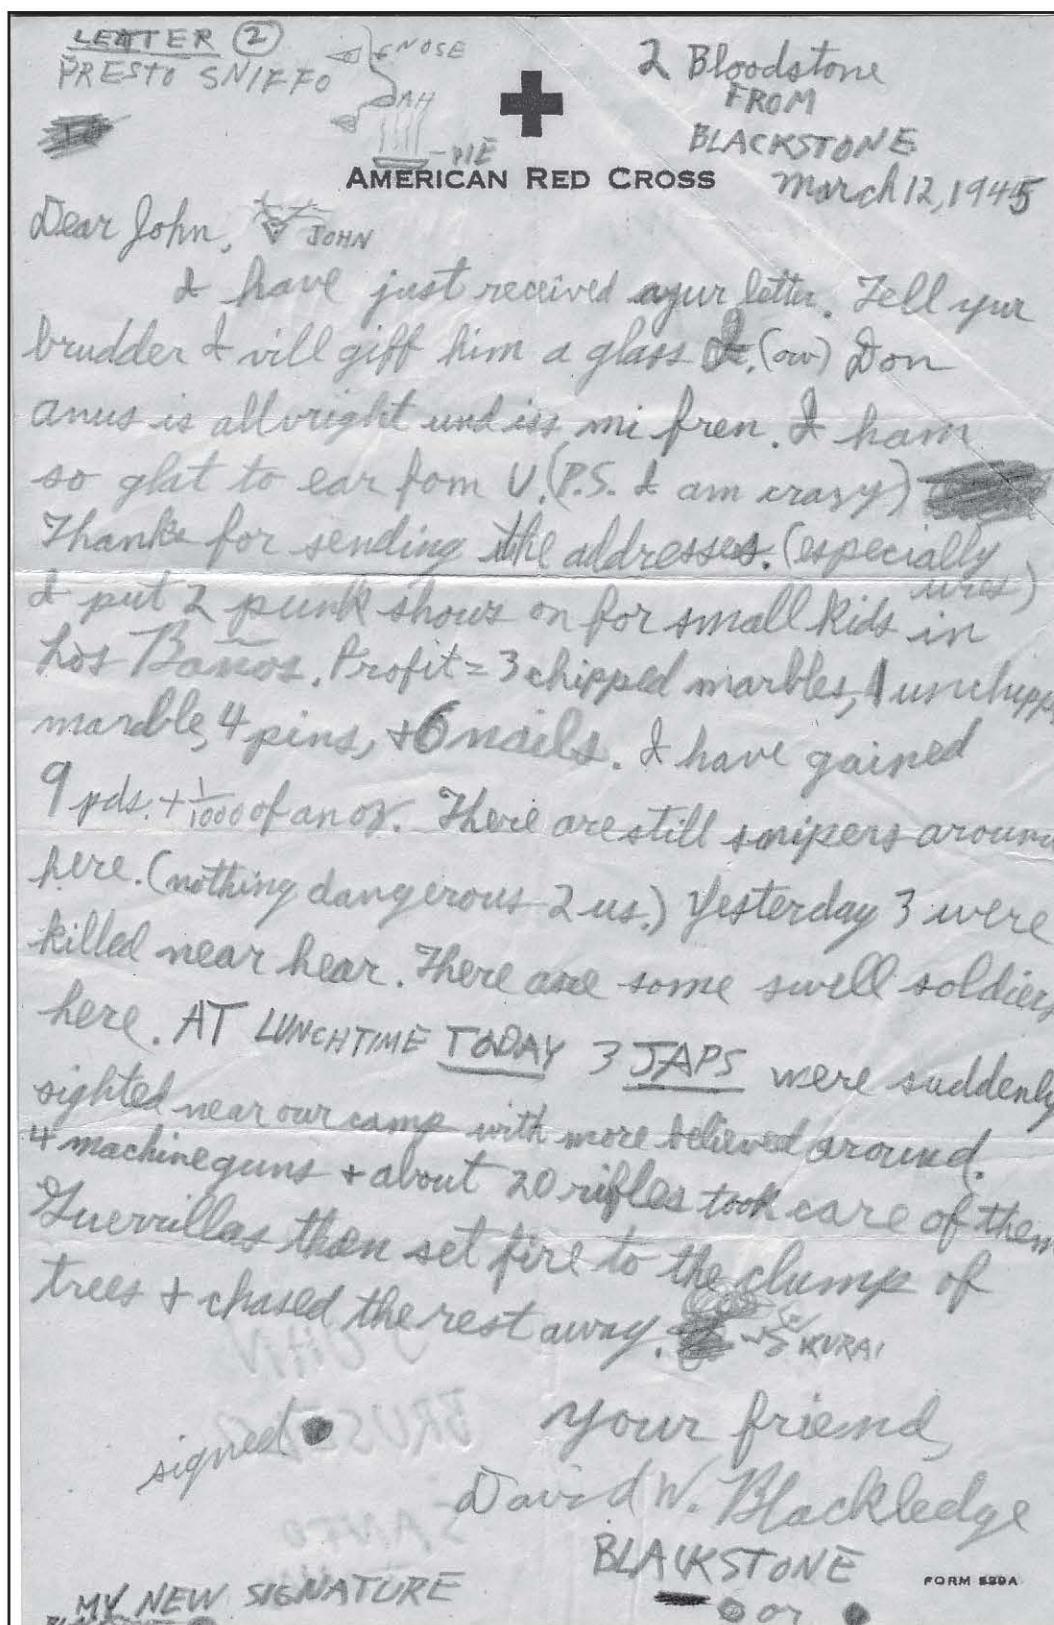 LETTER 2
PRESTO SNIFFO
NOSE
AH
ME
2 Bloodstone
FROM
BLACKSTONE
March 12, 1945
AMERICAN RED CROSS
Dear John,
JOHN
I have just received ayur letter. Tell yur
brudder I vill giff him a glass I. (ow) Don
anus is allvright und iss mi fren. I ham
so glat to ear fom U. (P.S. I am crazy)
Thanke for sending the addresses. (especially
ures)
I put 2 punk shows on for small kids in
Los Baños. Profit = 3 chipped marbles, 1 unchipp
marble, 4 pins, + 6 nails. I have gained
9 pds. + 1/1000 of an oz. There are still snipers around
here. (nothing dangerous 2 us.) Yesterday 3 were
killed near hear. There are some swell soldiers
here. AT LUNCHTIME TODAY 3 JAPS were suddenly
sighted near our camp with more believed around.
4 machineguns + about 20 rifles took care of them
Guerrillas then set fire to the clump of
trees + chased the rest away.
KURAI
signed
your friend,
David W. Blackledge
BLACKSTONE
or
MY NEW SIGNATURE
FORM 539A